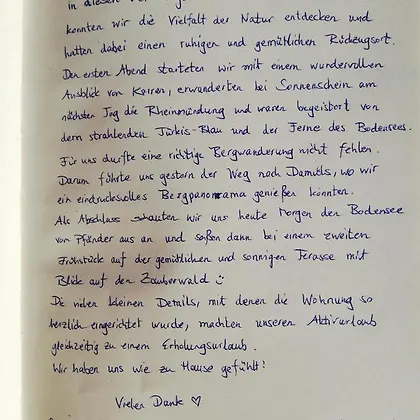 in diesen
konnten wir die Vielfalt der Natur entdecken und
hatten dabei einen ruhigen und gemütlichen Rückzugsort.
Den ersten Abend starteten wir mit einem wundervollen
Ausblick von Karren, erwanderten bei Sonnenschein am
nächsten Tag die Rheinmündung und waren begeistert von
dem strahlenden Türkis-Blau und der Ferne des Bodensees.
Für uns durfte eine richtige Bergwanderung nicht fehlen.
Darum führte uns gestern der Weg nach Damüls, wo wir
ein eindrucksvolles Bergpanorama genießen konnten.
Als Abschluss schauten wir uns heute Morgen den Bodensee
vom Pfänder aus an und saßen dann bei einem zweiten
Frühstück auf der gemütlichen und sonnigen Terasse mit
Blick auf den Zauberwald ☺
Die vielen kleinen Details, mit denen die Wohnung so
herzlich eingerichtet wurde, machten unseren Aktivurlaub
gleichzeitig zu einem Erholungsurlaub.
Wir haben uns wie zu Hause gefühlt!
Vielen Dank ♡